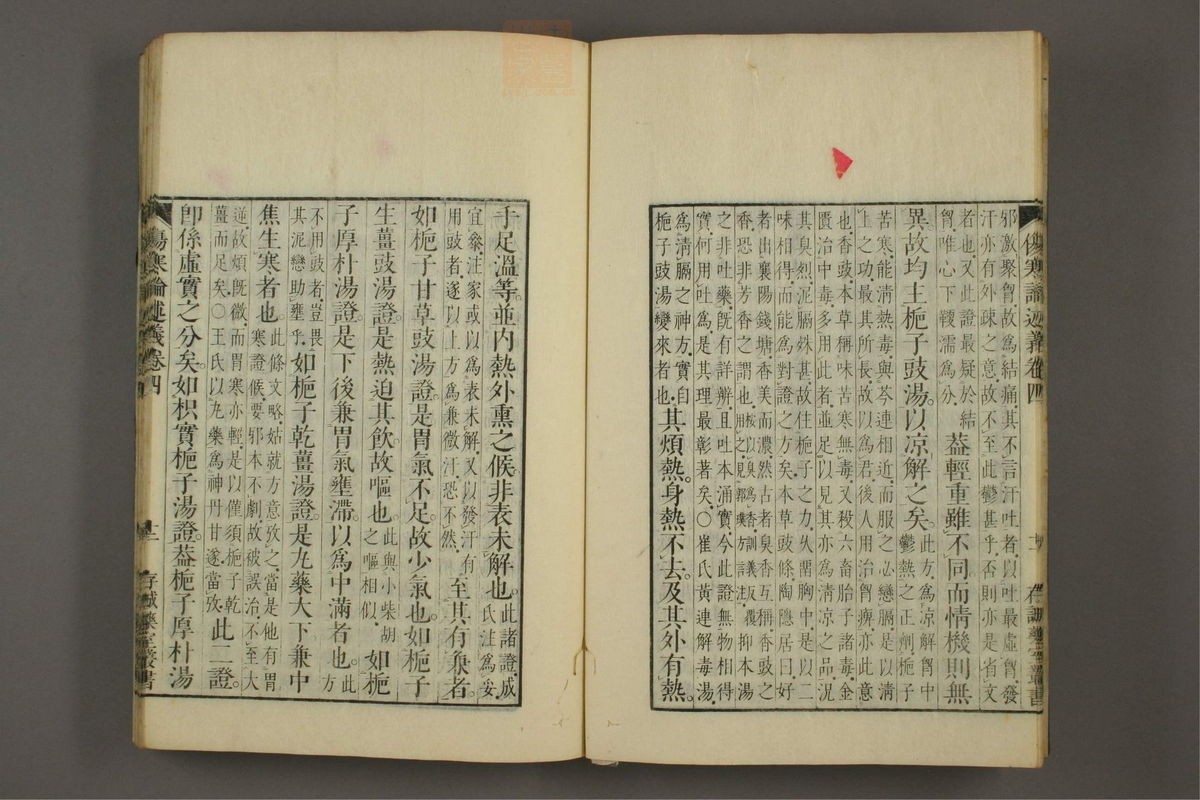 邪激聚胷故爲結痛其不言汗吐者以吐最虛胷發
汗亦有外疎之意故不至此鬱甚乎否則亦是省文
者也又此證最疑於結
胷唯心下鞕濡爲分
葢輕重雖不同而情機則無
異故均主梔子豉湯以凉解之矣
此方爲凉解胷中
鬱熱之正劑梔子
苦寒能清熱毒與芩連相近而服之必戀膈是以清
上之功最其所長故以爲君後人用治胷痹亦此意
也香豉本草稱味苦寒無毒又殺六畜胎子諸毒金
匱治中毒多用此者並足以見其亦爲清凉之品況
其臭烈泥膈殊甚故住梔子之力久畱胸中是以二
味相得而能爲對證之方矣本草豉條陶隱居曰好
者出襄陽錢塘香美而濃然古者臭香互稱香豉之
香恐非芳香之謂也
之非吐藥旣有詳辨且吐本涌實今此證無物相得
實何用吐爲是其理最彰著矣○崔氏黃連解毒湯
爲清膈之神方實自
梔子豉湯變來者也
其煩熱身熱不去及其外有熱
手足溫等並內熱外熏之候非表未解也
此諸證成
氏注爲妥
宜叅注家或以爲表未解又以發汗有
用豉者遂以上方爲兼微汗恐不然
至其有兼者
如梔子甘草豉湯證是胃氣不足故少氣也如梔子
生薑豉湯證是熱迫其飮故嘔也
此與小柴胡
之嘔相似
如梔
子厚朴湯證是下後兼胃氣壅滯以爲中滿者也
此方
不用豉者豈畏
其泥戀助壅乎
如梔子乾薑湯證是丸藥大下兼中
焦生寒者也
此條文略姑就方意攷之當是他有胃
寒證候要邪本不劇故被誤治不至大
逆故煩旣微而胃寒亦輕是以僅須梔子乾
薑而足矣○王氏以丸藥爲神丹甘遂當攷
此二證
卽係虛實之分矣如枳實梔子湯證葢梔子厚朴湯
傷寒論述義卷四
十二
存誠藥室叢書